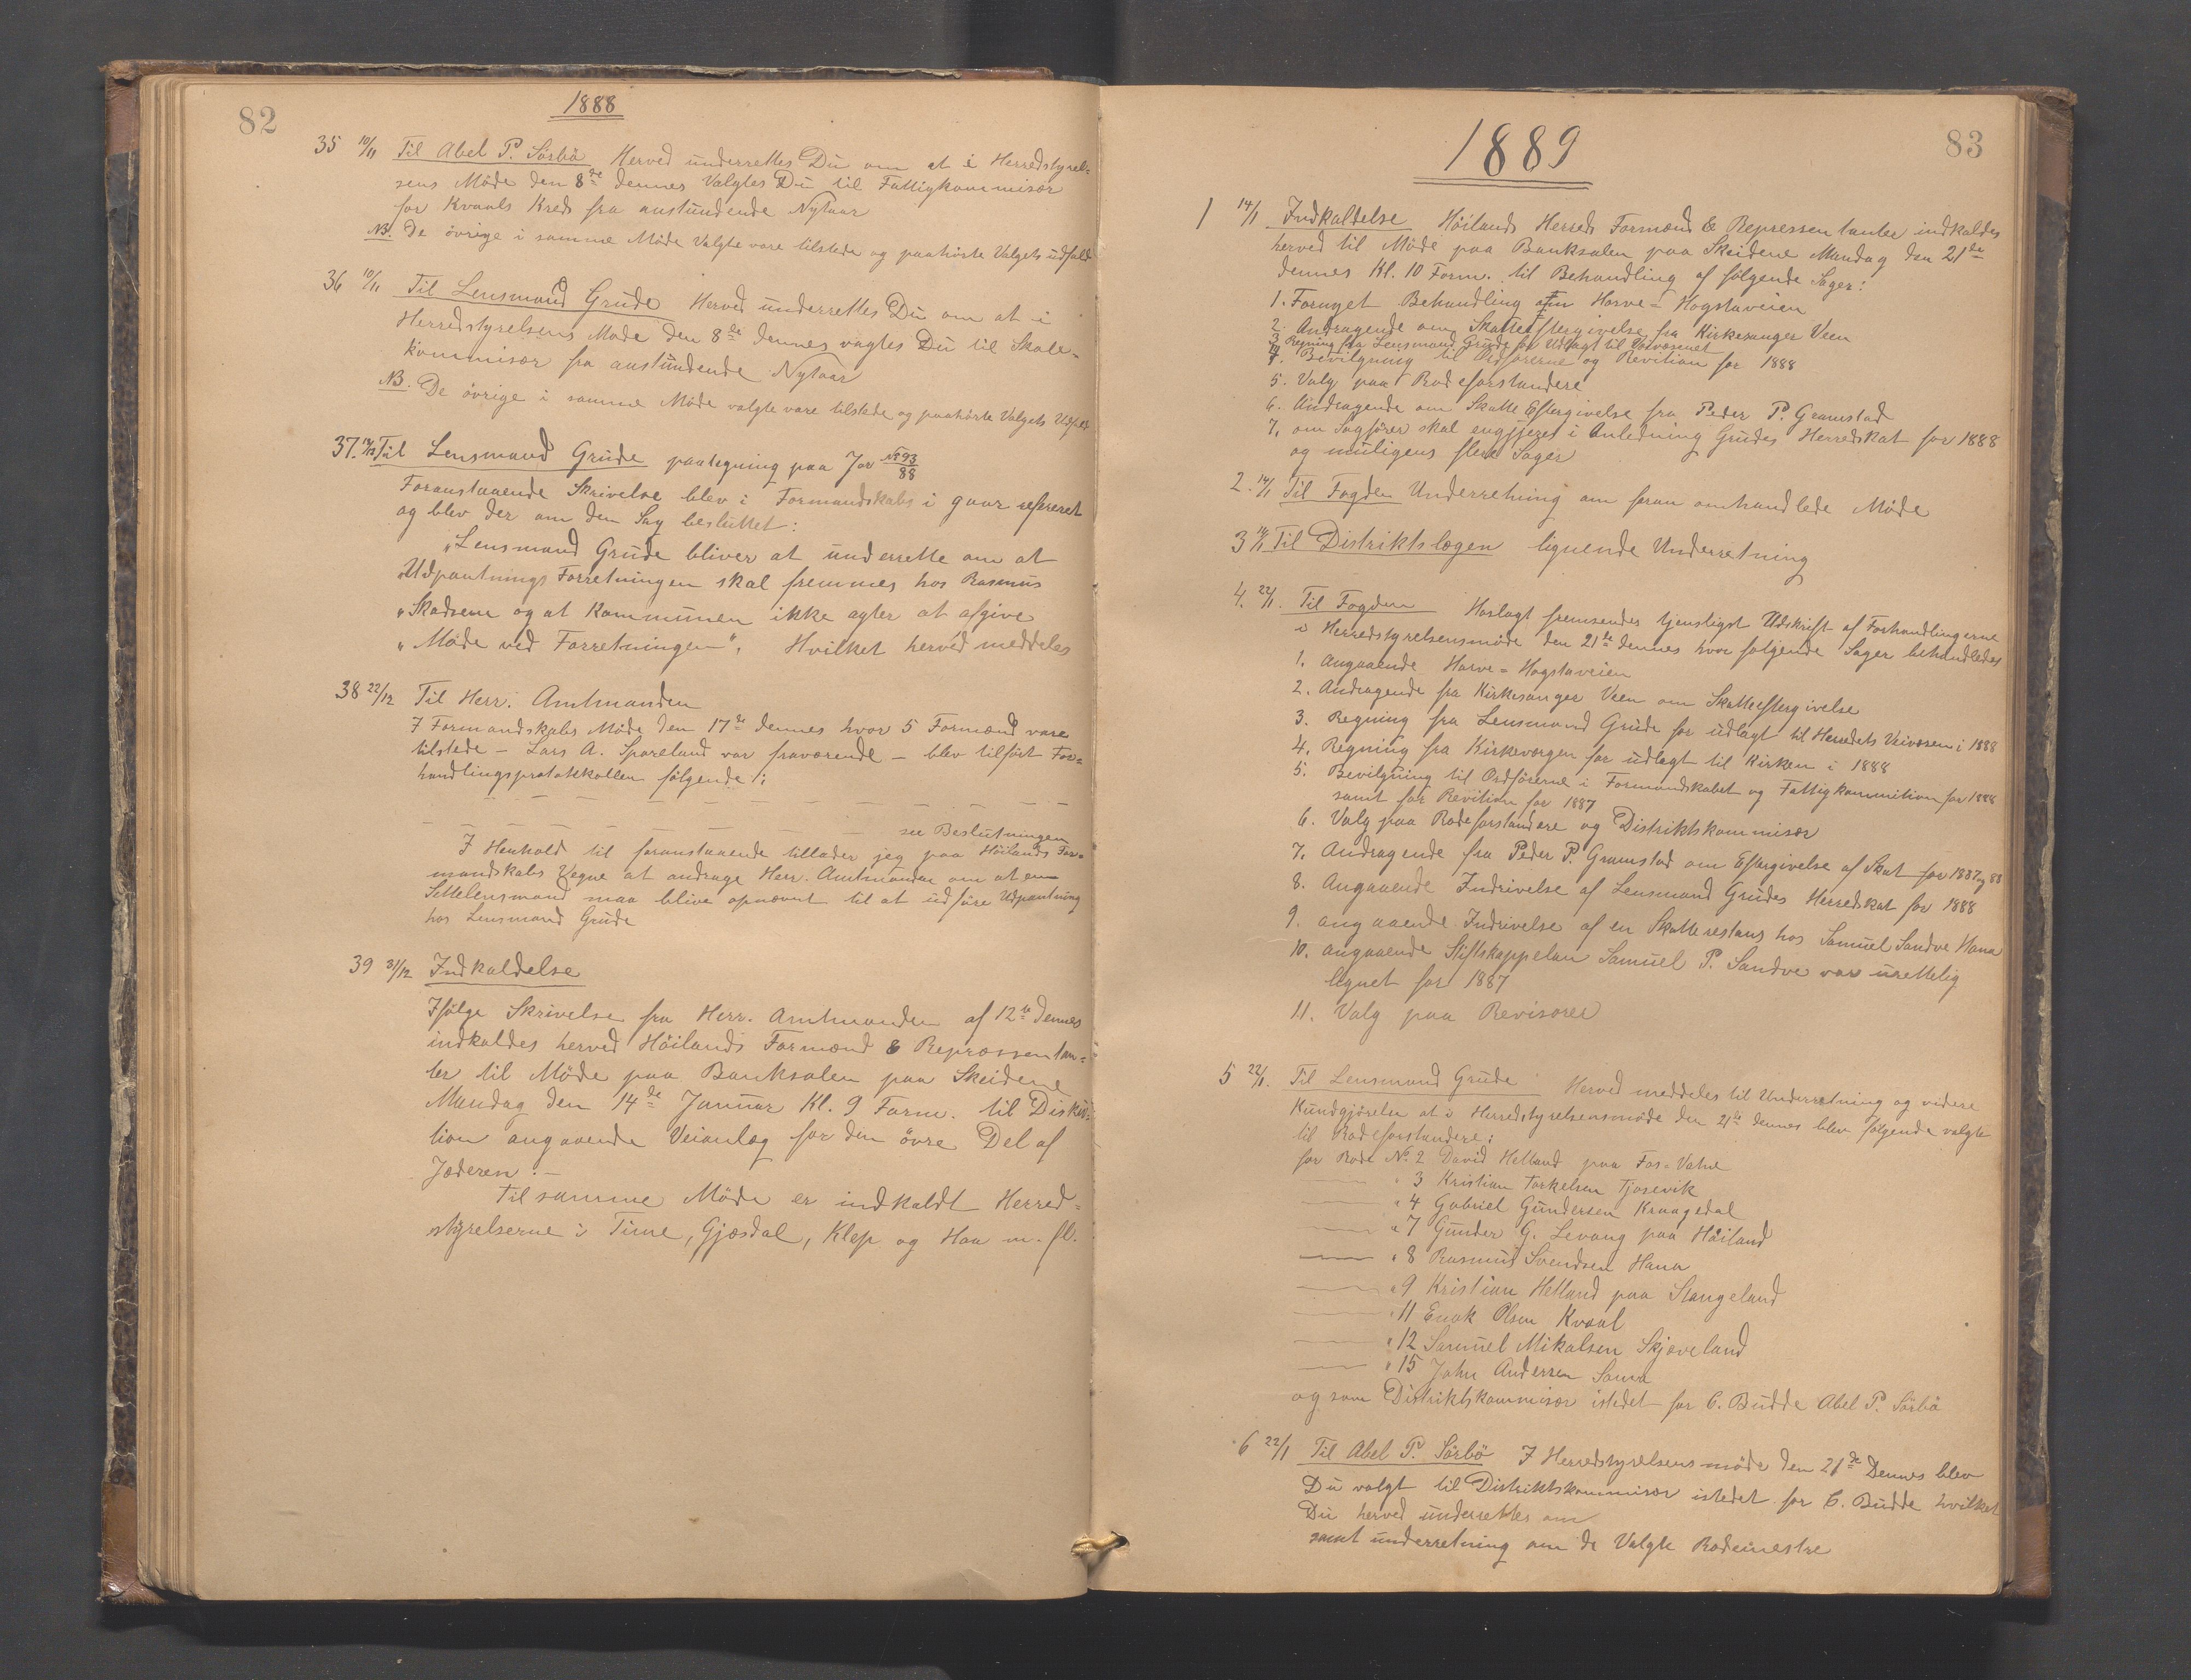 82
1888
35 10/11 Til Abel P. Sörbö Herved underrettes Du om at i Herredstyrel=
sens Möde den 8de dennes Valgtes Du til Fattigkommisær
for Kvaals Kreds fra anstundende Nytaar
NB. De övrige i samme Möde Valgte vare tilstede og paahörte Valgets udfald
36 10/11 Til Lensmand Grude Herved underrettes Du om at i
Herredstyrelsens Möde den 8de dennes vagtes Du til Skole-
kommisær fra anstundende Nytaar
NB. De övrige i samme Möde valgte vare tilstede og paahörte Valgets Udfald
37. Til Lensmand Grude paategning paa Jor No 93/88
Foranstaaende Skrivelse blev i Formandskabs i gaar refereret
og blev der om den Sag besluttet:
"Lensmand Grude bliver at underrette om at
"Udpantnings Forretningen skal fremmes hos Rasmus
"Skadsem og at Kommunen ikke agter at afgive
"Möde ved Forretningen". Hvilket herved meddeles
38 22/12 Til Herr. Amtmanden
I Formandskabs Möde den 17de dennes hvor 5 Formænd vare
tilstede - Lars A. Spareland var fraværende - blev tilfört For=
handlingsprotokkollen fölgende:
see Beslutningen
I Henhold til foranstaaende tillader jeg paa Höilands For=
mandskabs Vegne at andrage Herr. Amtmanden om at en
Settelensmand maa blive opnævnt til at udföre Udpantning
hos Lensmand Grude
39 31/12 Indkaldelse
Ifölge Skrivelse fra Herr. Amtmanden af 12te dennes
indkaldes herved Höilands Formænd & Repræssentan=
ter til Möde paa Banksalen paa Skeidene
Mandag den 14de Januar Kl. 9 Form. til Diskus=
tion angaaende Veianlæg for den övre Del af
Jæderen.-
Til samme Möde er indkaldt Herred=
styrelserne i Time, Gjæsdal, Klep og Haa m. fl.
83
1889
1 14/1 Indkaldelse Höilands Herreds Formænd & Repressentanter indkaldes
herved til Möde paa Banksalen paa Skeidene Mandag den 21de
dennes Kl. 10 Form. til Behandling af fölgende Sager:
1. Fornyet Behandling om Horve= Hogstaveien
2. Andragende om Skatteeftergivelse fra Kirkesanger Veen
3 Regning fra Lensmand Grude for Udlagt til Veivæsenet
4. Bevilgning til Ordförerne og Revition for 1888
5. Valg paa Rodeforstandere
6. Andragende om Skatte Eftergivelse fra Peder P. Gramstad
7. om Sagförer skal engjeres i Anledning Grudes Herredskat for 1888
og muligens flere Sager
2. 14/1 Til Fogden Underretning om foran omhandlede Möde
3 14/1 Til Distriktslægen lignende Underretning
4. 22/1. Til Fogden Hoslagt fremsendes tjenstligst Udskrift af Forhandlingerne
i Herredstyrelsensmöde den 21de dennes hvor fölgende Sager behandledes
1. Angaaende Horve= Hogstaveien
2. Andragende fra Kirkesanger Veen om Skatteeftergivelse
3. Regning fra Lensmand Grude for udlagt til Herredets Veivæsen i 1888
4. Regning fra Kirkeværgen for udlagt til Kirken i 1888
5. Bevilgning til Ordförerne i Formandskabet og Fattigkommition for 1888
samt for Revition for 1887
6. Valg paa Rodeforstandere og Distriktskommisær
7. Andragende fra Peder P. Gramstad om Eftergivelse af Skat for 1887 og 88
8. Angaaende Indrivelse af Lensmand Grudes Herredskat for 1888
9. angaaende Indrivelse af en Skatterestans hos Samuel Sandve Hana
10. angaaende Stiftskappelan Samuel P. Sandve var urettelig
lignet for 1887
11. Valg paa Revisorer
5 22/1. Til Lensmand Grude Herved meddeles til Underretning og videre
Kundgjörelse at i Herredstyrelsensmöde den 21de dennes blev fölgende valgte
til Rodeforstandere:
for Rode No. 2 David Helland paa Fos=Vatne
" 3 Kristian Torkelsen Tjosevik
" 4 Gabriel Gundersen Kraagedal
" 7 Gunder G. Levang paa Höiland
" 8 Rasmus Svendsen Hana
" 9 Kristian Hetland paa Stangeland
" 11 Enok Olsen Kvaal
" 12 Samuel Mikalsen Skjæveland
" 15 John Andersen Soma
og som Distriktskommisær istedet for C. Budde Abel P. Sörbö
6 22/1 Til Abel P. Sörbö I Herredstyrelsensmöde den 21de Dennes blev
Du valgt til Distriktskommisær istedet for C. Budde hvilket
Du herved underrettes om
samt underretning om de Valgte Rodemestre